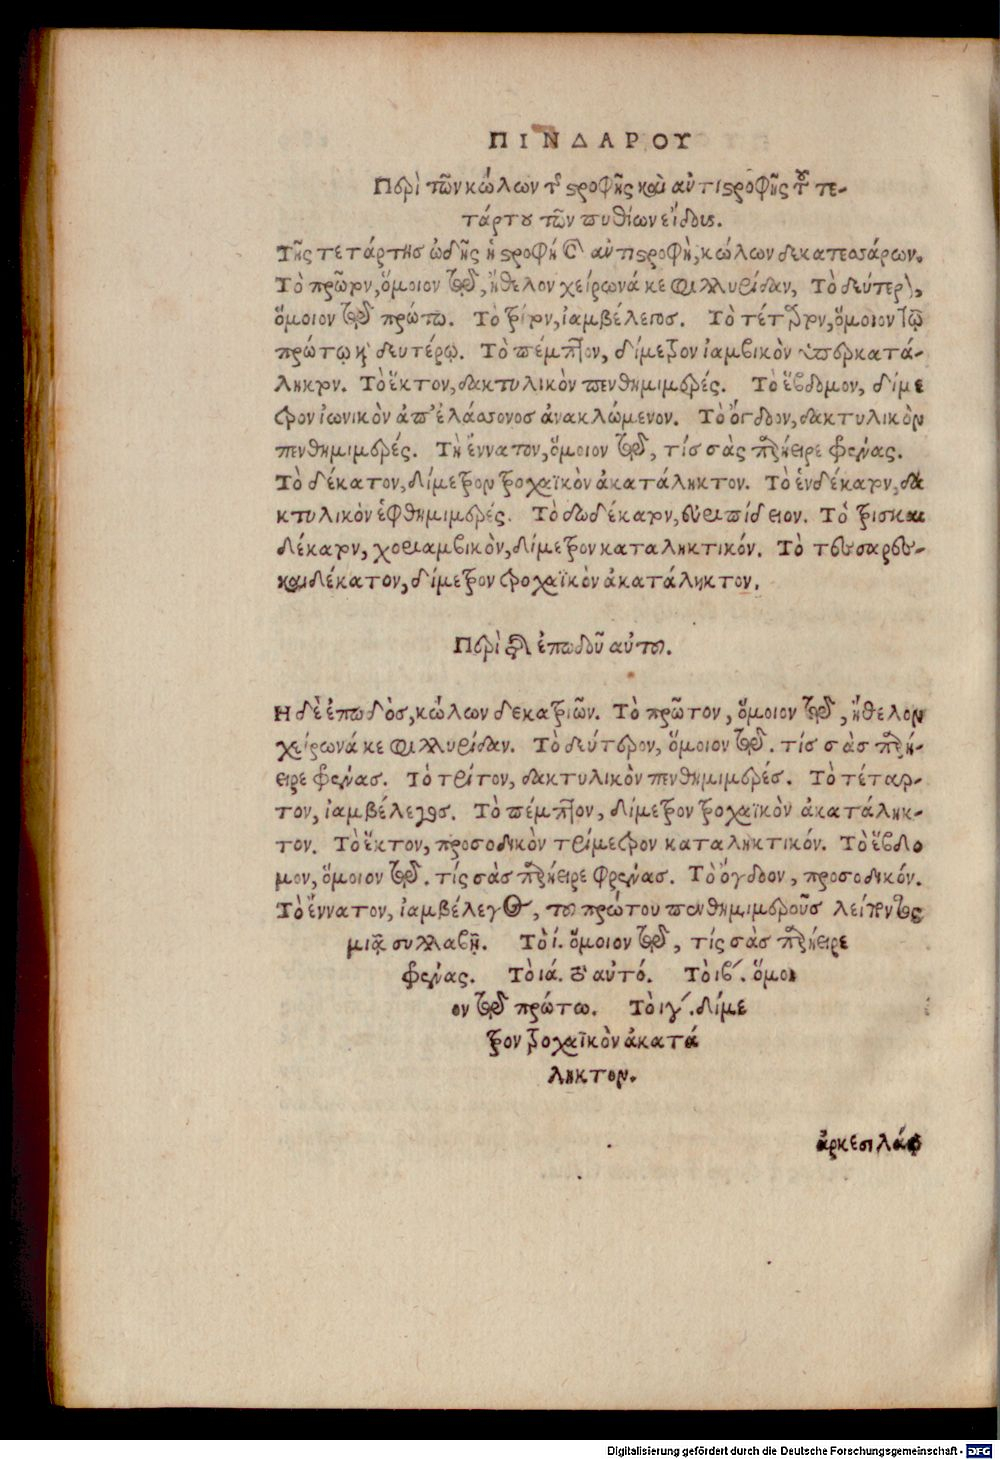 ΠΙΝΔΑΡΟΥ
Περὶ τῶν κώλων τῆς στροφῆς καὶ ἀντιστροφῆς τοῦ τε-
τάρτου τῶν πυθίων εἴδους.
Τῆς τετάρτης ὠδῆς ἡ στροφὴ καὶ ἀντιστροφὴ, κώλων δεκατεσσάρων.
Τὸ πρῶτον, ὅμοιον τῷ, ἤθελον χείρωνά κε φιλλυρίδαν, Τὸ δεύτερον,
ὅμοιον τῷ πρώτω. Τὸ τρίτον, ἰαμβέλεγος. Τὸ τέταρτον, ὅμοιον τῷ
πρώτῳ καὶ δευτέρῳ. Τὸ πέμπτον, δίμετρον ἰαμβικὸν ὑπερκατά-
ληκτον. Τὸ ἕκτον, δακτυλικὸν πενθημιμερές. Τὸ ἕβδομον, δίμε
τρον ἰωνικὸν ἀπ' ἐλάσσονος ἀνακλώμενον. Τὸ ὄγδοον, δακτυλικὸν
πενθημιμερές. Τὴ ἔννατον, ὅμοιον τῷ, τίς σὰς παρήειρε φρένας.
Τὸ δέκατον, δίμετρον τροχαϊκὸν ἀκατάληκτον. Τὸ ἑνδέκατον, δα
κτυλικὸν ἑφθημιμερές. Τὸ δωδέκατον, εὐριπίδειον. Τὸ τρισκαι
δέκατον, χοριαμβικὸν, δίμετρον καταληκτικόν. Τὸ τεσσαρεσ-
καιδέκατον, δίμετρον τροχαϊκὸν ἀκατάληκτον.
Περὶ τῆς ἐπωδοῦ αὐτοῦ.
Η δὲ ἐπωδὸς, κώλων δεκατριῶν. Τὸ πρῶτον, ὅμοιον τῷ, ἤθελον
χείρωνά κε φιλλυρίδαν. Τὸ δεύτερον, ὅμοιον τῷ. τίς σὰς παρή-
ειρε φρένας. Τὸ τρίτον, δακτυλικὸν πενθημιμερές. Τὸ τέταρ-
τον, ἰαμβέλεγος. Τὸ πέμπτον, δίμετρον τροχαϊκὸν ἀκατάληκ-
τον. Τὸ ἕκτον, προσοδικὸν τρίμετρον καταληκτικόν. Τὸ ἕβδο
μον, ὅμοιον τῷ. τίς σὰς παρήειρε φρένας. Τὸ ὄγδοον, προσοδικόν.
Τὸ ἔννατον, ἰαμβέλεγος, τοῦ πρώτου πενθημιμεροῦς λείποντος
μιᾷ συλλαβῇ. Τὸ ί. ὅμοιον τῷ, τίς σὰς παρήειρε
φρένας. Τὸ ιά. τὸ αὐτό. Τὸ ιβ´. ὅμοι
ον τῷ πρώτω. Τὸ ιγ´. δίμε
τρον τροχαϊκὸν ἀκατά
ληκτον.
ἀρκεσιλάῳ
Digitalisierung gefördert durch die Deutsche Forschungsgemeinschaft - DFG